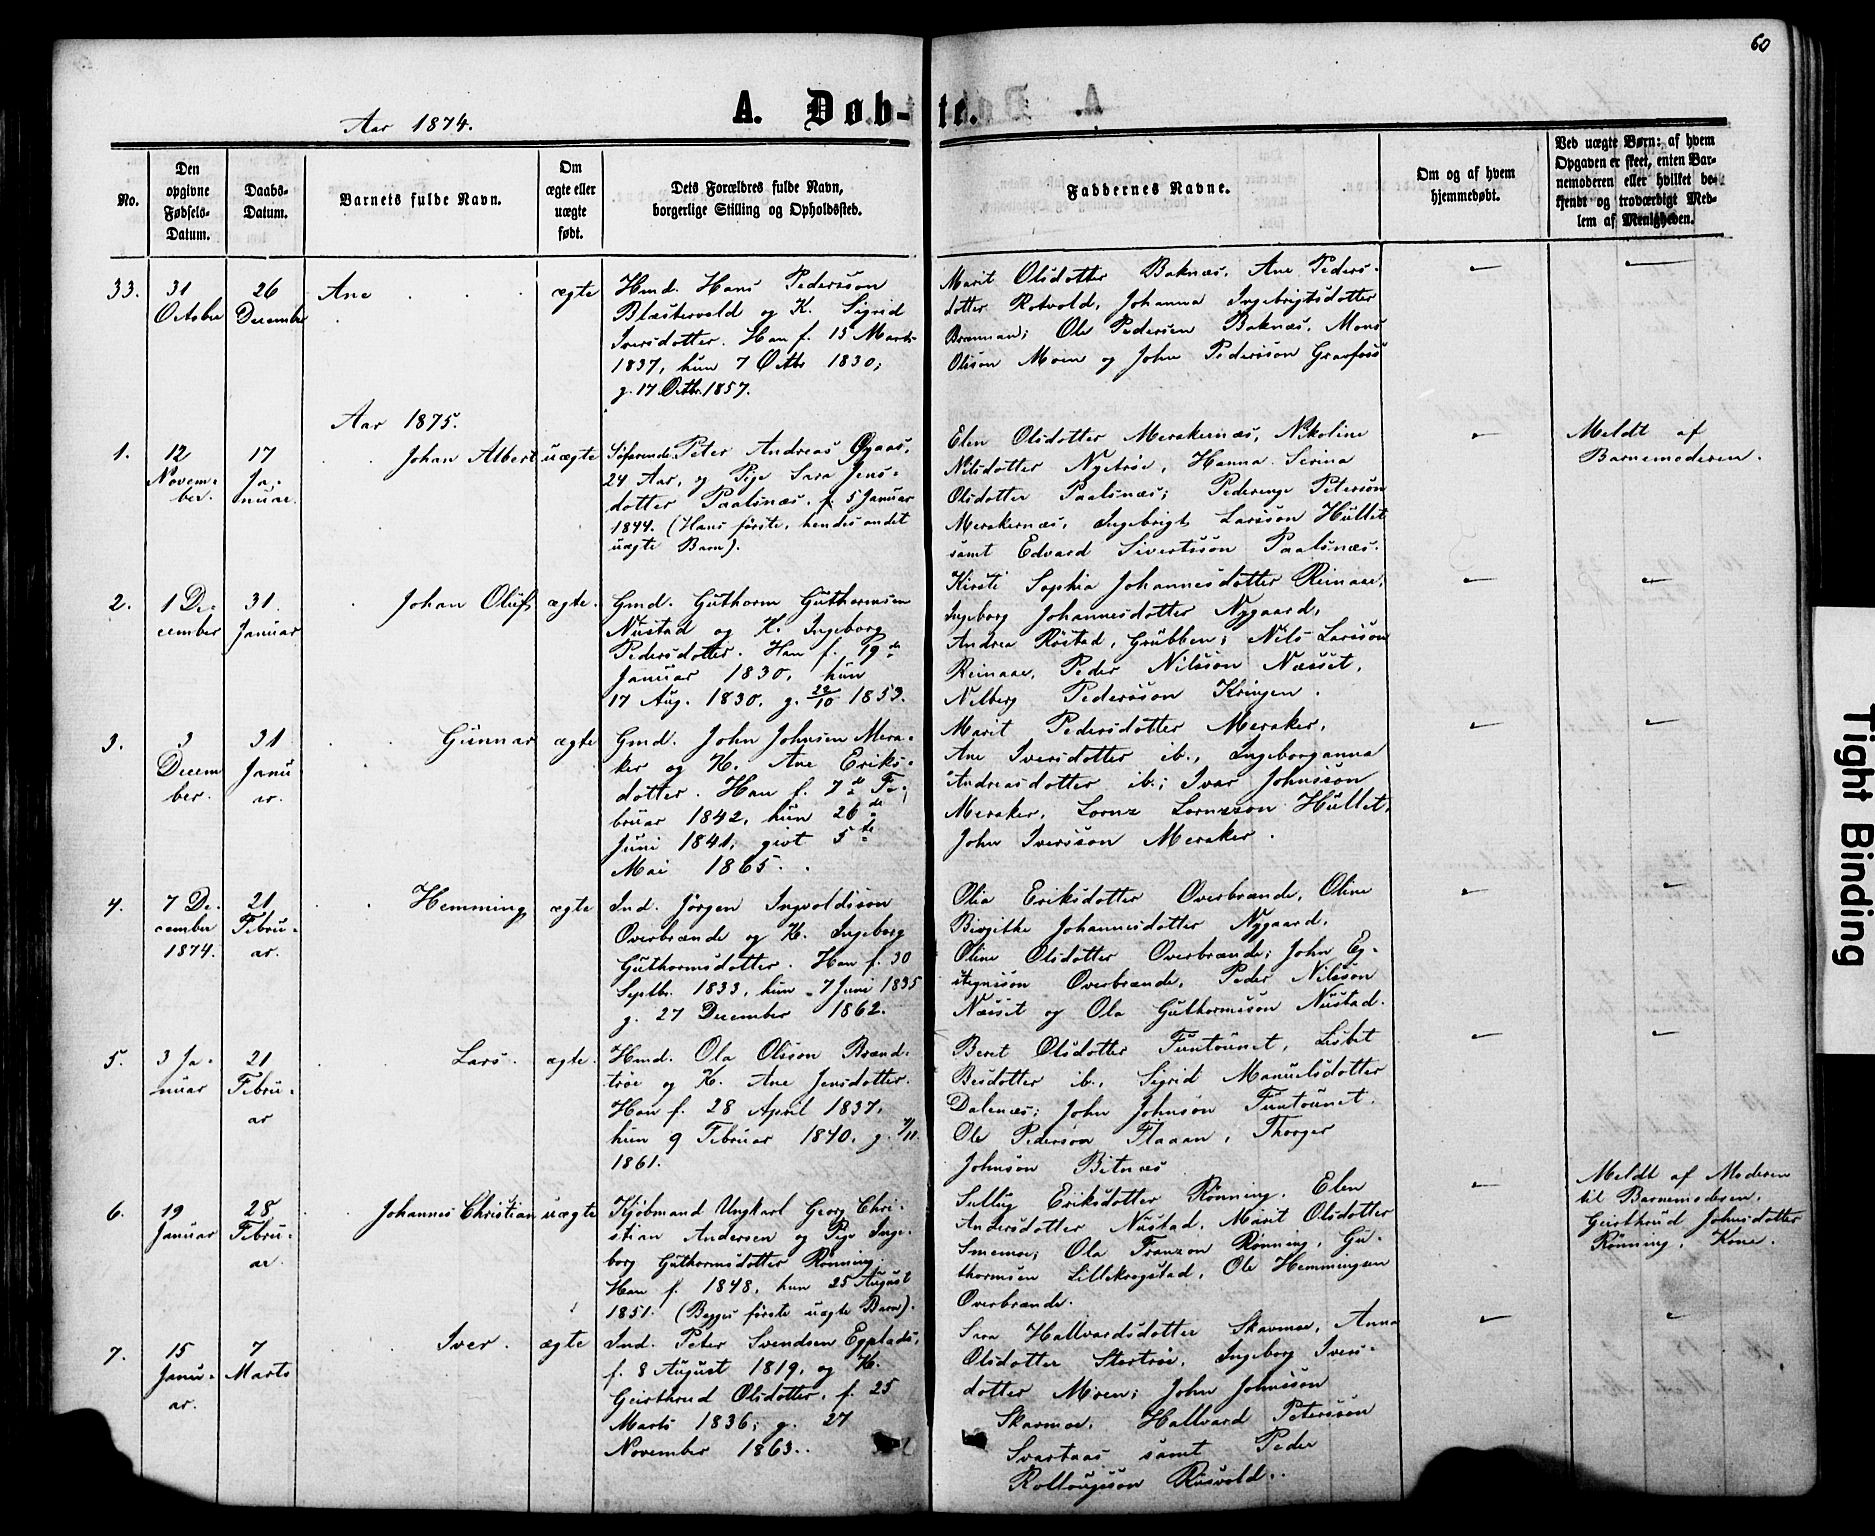 60
Aar 1874.
A. Døb-te.
No.
Den opgivne Fødsels-Datum.
Daabs-Datum.
Barnets fulde Navn.
Om ægte eller uægte født.
Dets Forældres fulde Navn, borgerlige Stilling og Opholdssted.
Faddernes Navne.
Om og af hvem hjemmedøbt.
Ved uægte Børn: af hvem Opgaven er skeet, enten Barnemoderen eller hvilket bekjendt og troværdigt Medlem af Menigheden.
33.
31 October
26 December
Ane
ægte
Hmd. Hans Pedersson
Blæstervold og K. Sigrid
Iversdotter. Han f. 13 Marts
1837, hun 7 Octbr 1830;
g. 17 Octbr. 1857.
Marit Olsdotter Baknæs, Ane Peders-
dotter Rotvold, Johanna Ingebrigtsdotter
Brennan; Ole Pedersen Baknæs, Mons
Olsson Moen og John Pedersson Gravfoss
Aar 1875.
1.
12 Novem-
ber.
17 Ja-
nuar.
Johan Albert
uægte
Søfarende Peter Andreas
24 Aar, og Pige Sara Jens-
dotter Paalsnæs, f. 5 Januar
1844. (Hans første, hendes andet
uægte Barn).
Elen Olsdotter Merakernæs, Nikoline
Nilsdotter Nytrøe, Hanna Serina
Olsdotter Paalsnæs; Peterson
Merakernæs, Ingebrigt Larsson Hullet
samt Edvard Sivertsson Paalsnæs.
Meldt af
Barnemoderen.
2.
1 De-
cember
31.
Januar
Johan Oluf
ægte.
Gmd. Guthorm Guthormsen
Nustad og K. Ingeborg
Pedersdotter. Han f. 19de
Januar 1830, hun
17 Aug. 1830, g. 29/10 1853.
Kirsti Sophia Johannesdotter Reinaae,
Ingeborg Johannesdotter Nygaard,
Andrea Røstad, Grubben; Nils Larsson
Reinaae, Peder Nilsson Næsset,
Nilberg Pedersson Kringen.
3.
3
Decem-
ber.
31
Janu
ar.
Gunnar
ægte
Gmd. John Johnsen Mera-
ker og K. Ane Eriks-
dotter. Han f. 7de Fe-
bruar 1842, hun 26de
Juni 1841; givt 5te
Mai 1865.
Marit Pedersdotter Meraker,
Ane Iversdotter ib., Ingeborganna
Andreasdotter ib.; Ivar Johnsson
Meraker, Lorns Lornsson Hullet,
John Iversson Meraker.
4.
7 De-
cember
1874.
21
Febru-
ar.
Hemming
ægte
Ind. Jørgen Ingvoldsson
Overbrænde og K. Ingeborg
Guthormsdotter. Han f. 30
Septbr. 1833, hun 7 Juni 1835
g. 27 December 1862.
Olia Eriksdotter Overbrænde, Oline
Birgithe Johannesdotter Nygaard,
Oline Olsdotter Overbrænde; John Ey-
steinsson Overbrænde, Peder Nilsson
Næsset og Ola Guthormsson Nustad.
5.
3 Ja-
nuar
21
Febru-
ar
Lars.
ægte.
Hmd. Ola Olsson Brænd-
trøe og K. Ane Jensdotter.
Han f. 28 April 1837,
hun 9 Februar 1840, g.
1861.
Beret Olsdotter Funtaunet, Lisbet
ib., Sigrid Manuelsdotter
Dalenæs; John Johnson Funtaunet,
Ole Pedersson Flaaan, Thorger
Johnson Bitnæs
6.
19
Januar
28
Febru-
ar.
Johannes Christian
uægte
Kjøbmand Ungkarl Georg Chri-
stian Andersen og Pige Inge-
borg Guthormsdotter Rønning.
Han f. 1848, hun 25 August
1851. (Begges første uægte Barn).
Sullug Eriksdotter Rønning, Elen
Andersdotter Nustad, Marit Olsdotter
Smemoe; Ola Franzon Rønning, Gu-
thormsen Lillekrogstad, Ole Hemmingsen
Overbrænde.
Meldt af Moderen
til Barnemoderen,
Geirthrud Johnsdotter
Rønning, Kone.
7.
15
Janu-
ar.
7
Marts
Iver
ægte
Ind. Peter Svendsen Egplads,
f. 8 August 1819, og K.
Geirthrud Olsdotter, f. 25
Marts 1836; g. 27
November 1863.
Sara Hallvardsdotter Skavmoe, Anna
Olsdotter Stortrøe, Ingeborg Ivers-
dotter Moen; John Johnsson
Skavmoe, Hallvard Petersson
Svartaas samt Peder
Rollougsson Rusvold.
Tight Binding